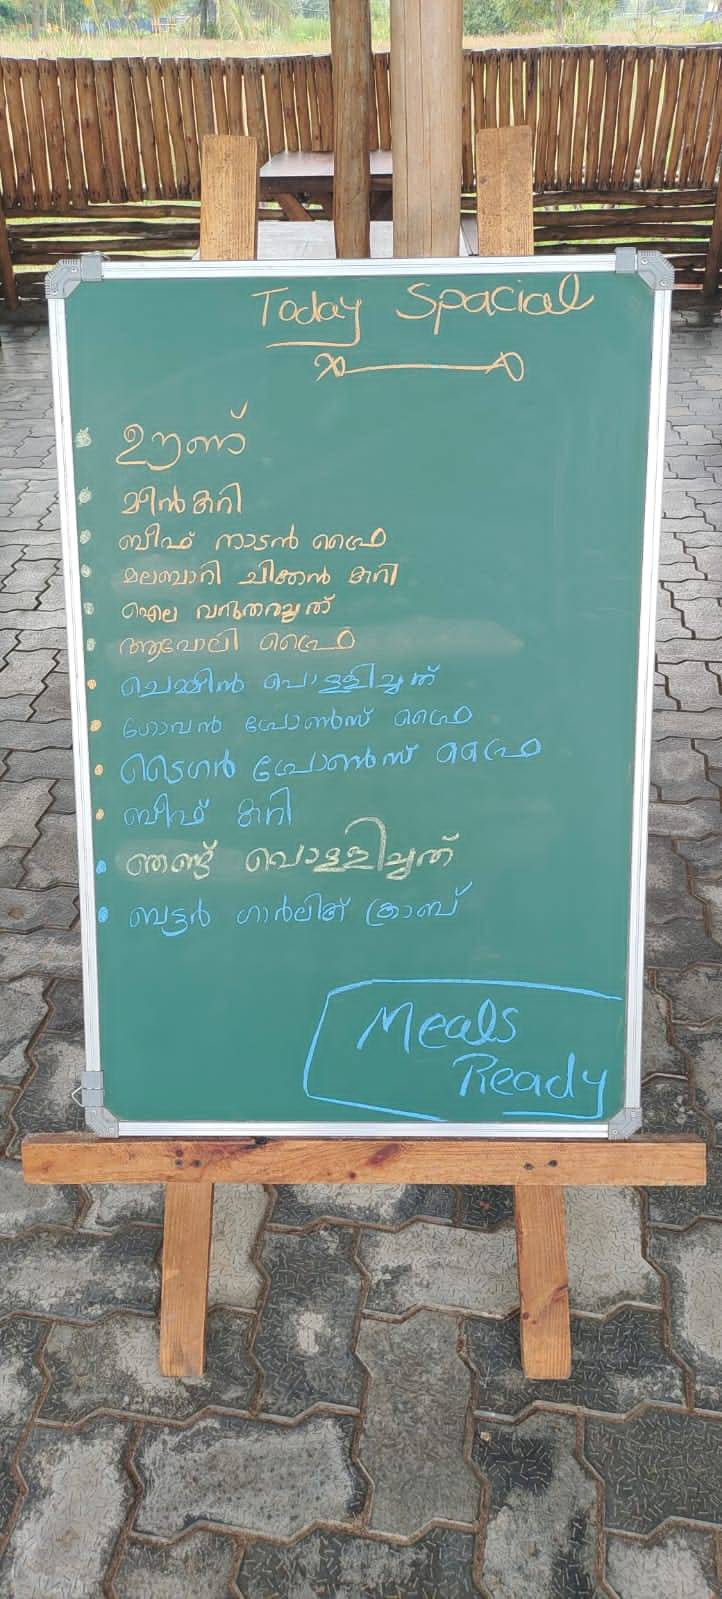 Today Spacial
ഊണ്
മീൻകറി
ബീഫ് നാടൻ ഫ്രൈ
മലബാറി ചിക്കൻ കറി
ഐല വറുത്തരച്ചത്
ആവോലി ഫ്രൈ
ചെമ്മീൻ പൊള്ളിച്ചത്
ഗോവൻ പ്രോൺസ് ഫ്രൈ
ടൈഗർ പ്രോൺസ് ഫ്രൈ
ബീഫ് കറി
ഞണ്ട് പൊള്ളിച്ചത്
ബട്ടർ ഗാർലിക് ക്രാബ്
Meals
Ready